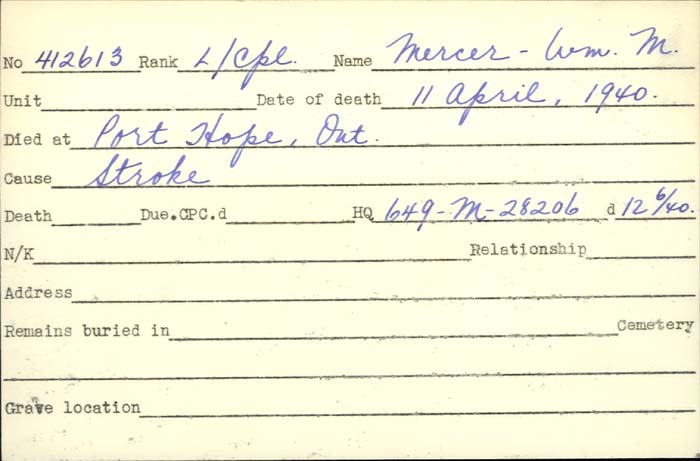 No 412613 Rank L/Cpl. Name Mercer - Wm. M.
Unit Date of death 11 April, 1940.
Died at Port Hope, Ont.
Cause Stroke
Death Due.CPC.d HQ 649-M-28206 d 12 6/40.
N/K Relationship
Address
Remains buried in Cemetery
Grave location